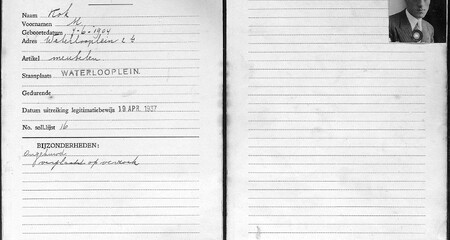 Naam Kok
Voornamen M.
Geboortedatum 7-6-1904
Adres Waterlooplein 2
Artikel meubelen
Staanplaats WATERLOOPLEIN.
Gedurende
Datum uitreiking legitimatiebewijs 19 APR. 1937
No. soll.lijst 16
BIJZONDERHEDEN:
overplaatst op verzoek